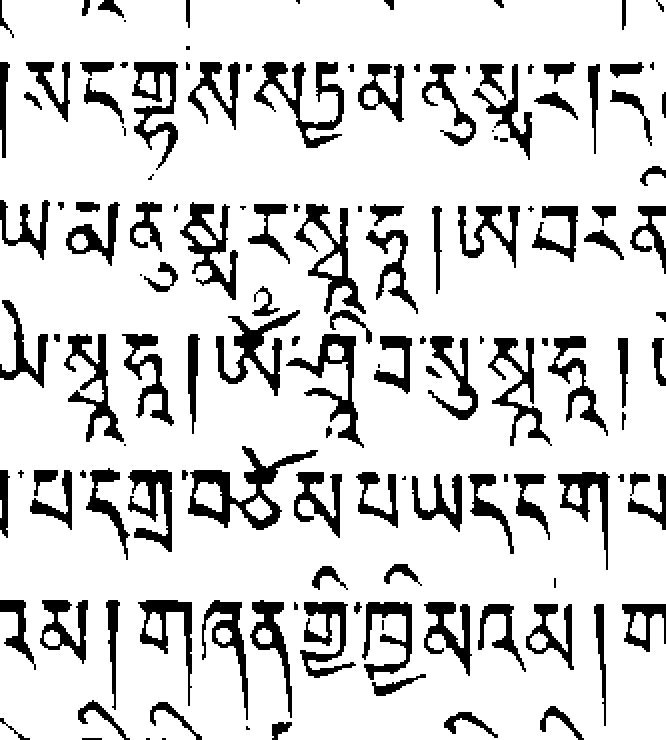 །ས་ང་གྷ་ས་སཏྱ་མ་ནུ་སྨ་ར།ད
ཡ་མ་ནུ་སྨ་ར་སྭཱ་ཧཱ།ཨ་བ་ར་ན
ཡེ་སྭཱ་ཧཱ།ཨོ་ཤྲཱི་བ་སུ་སྭཱ་ཧཱ།
་པ་དང་གྲ་བཅོམ་པ་ཡང་དག་པ
འམ།གཞན་གྱི་ཁྱིམའམ།ག